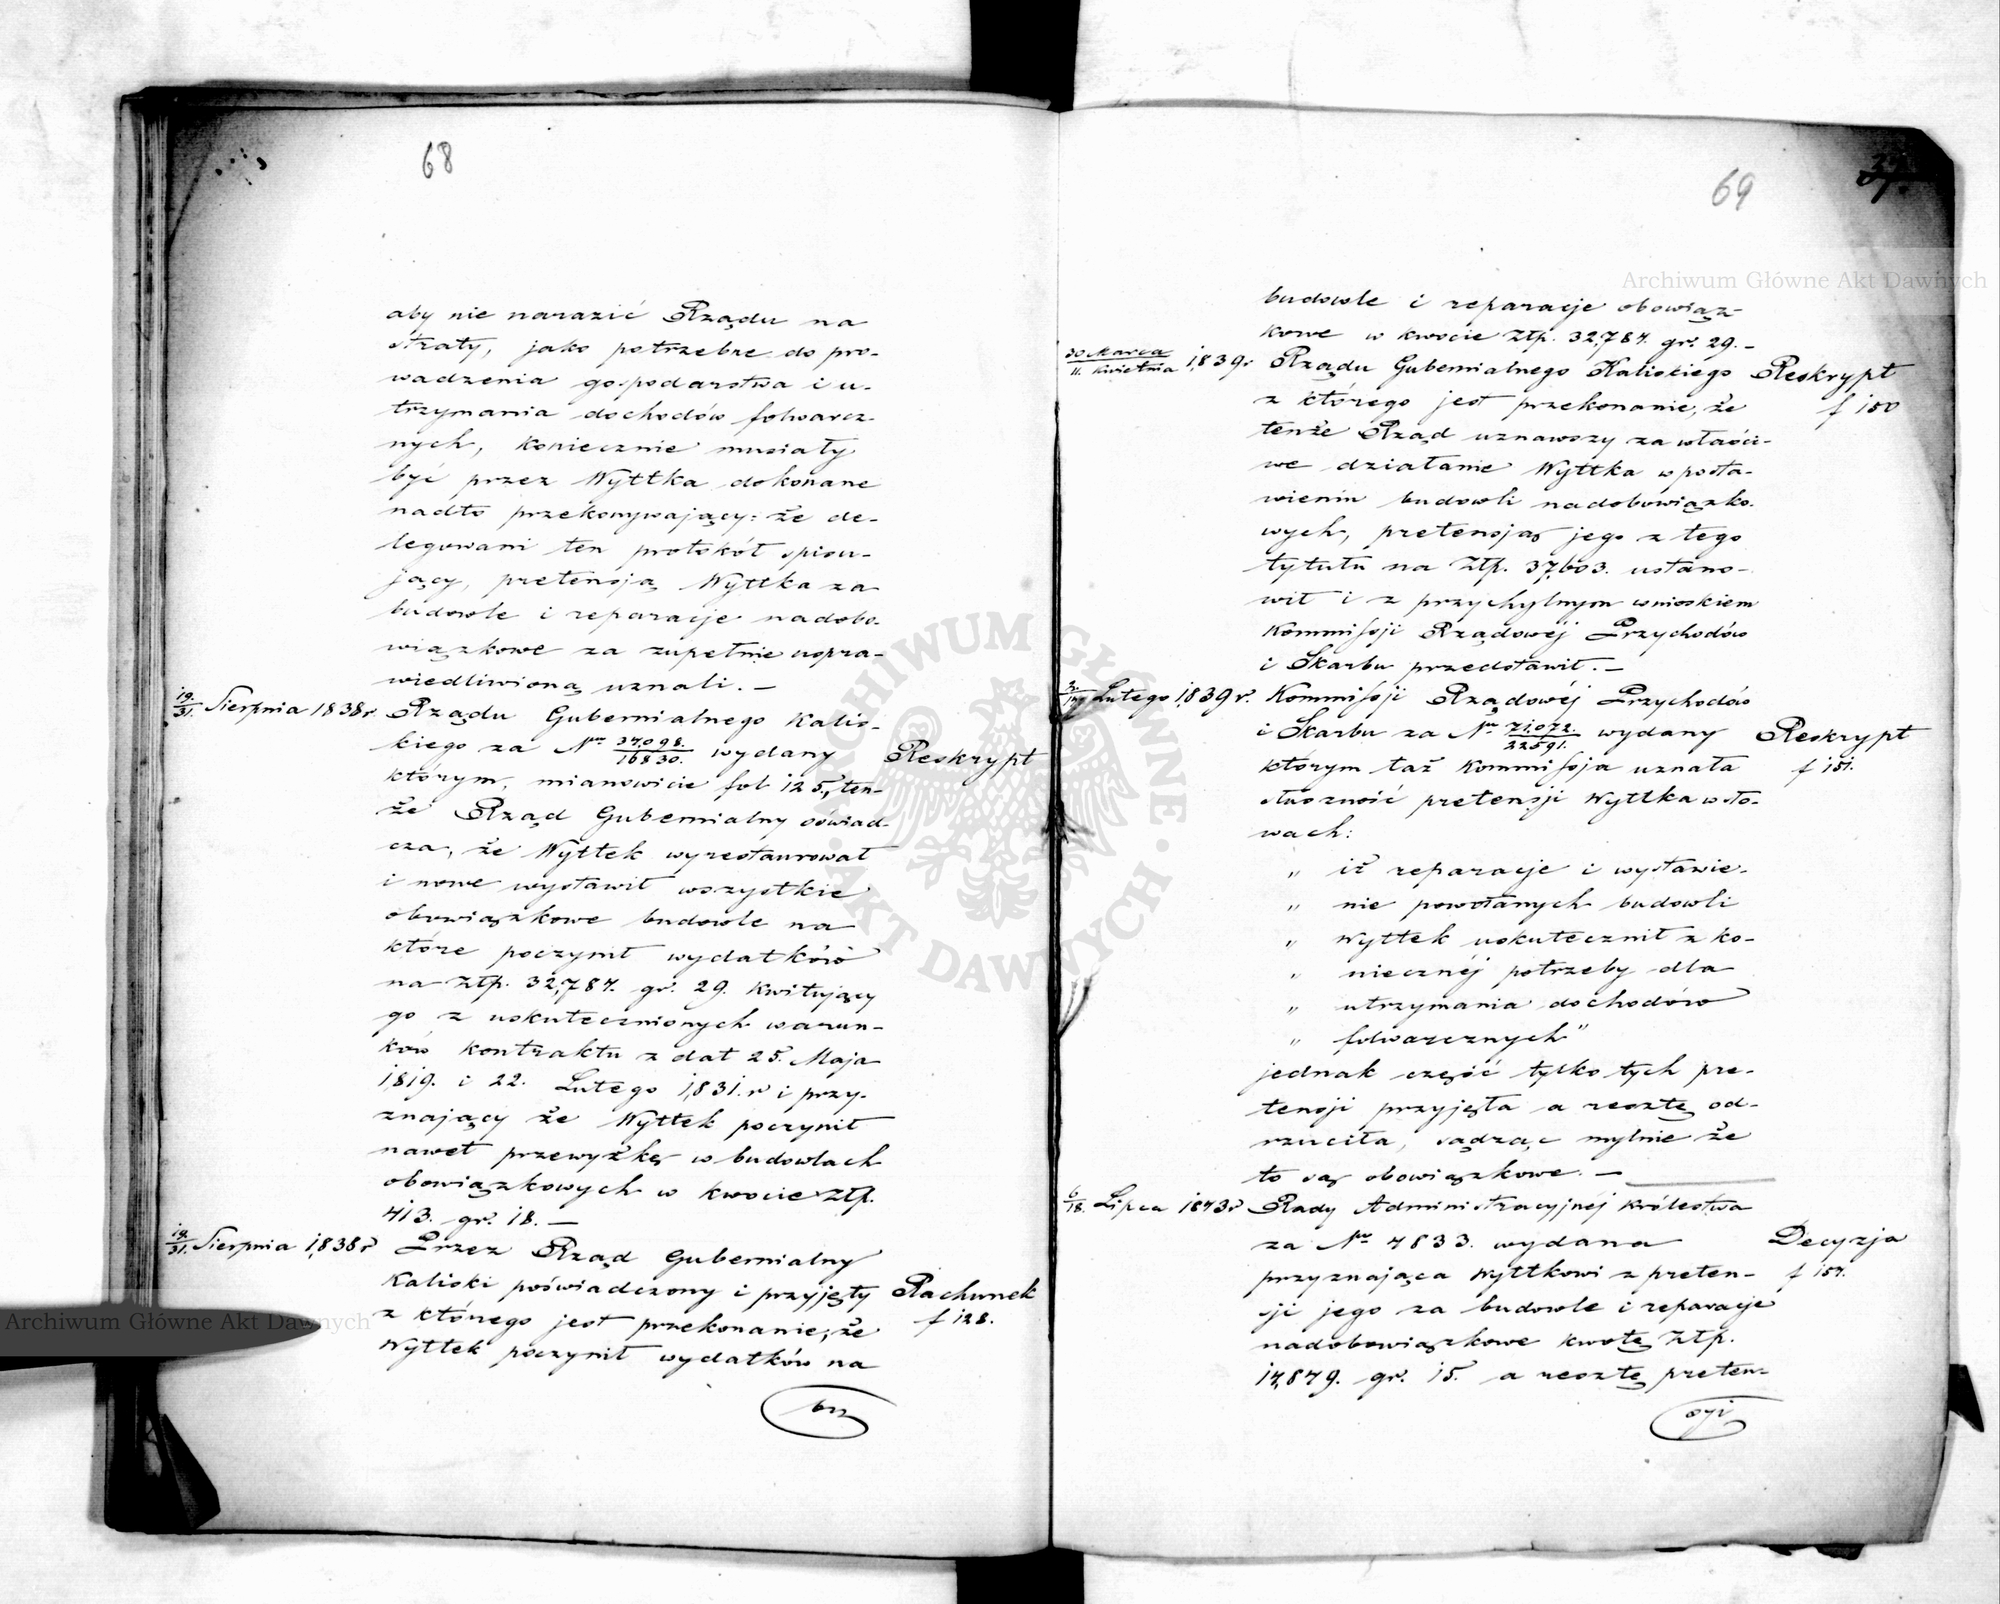 68
aby nie narazić Rządu na
straty, jako potrzebne do pro-
wadzenia gospodarstwa i u-
trzymania dochodów folwarcz-
nych, koniecznie musiały
być przez Wyttka dokonane
nadto przekonywający: że de-
legowani ten protokół spisu-
jący, pretensją Wyttka za
budowle i reparacje nadobo-
wiązkowe za zupełnie uspra-
wiedliwioną uznali. —
19/31. Sierpnia 1838 r. Rządu Gubernialnego Kalis-
kiego za Nrm 37,098./16830. wydany Reskrypt
którym, mianowicie fol 125, ten-
że Rząd Gubernialny oświad-
cza, że Wyttek wyrestaurował
i nowe wystawił wszystkie
obowiązkowe budowle na
które poczynił wydatków
na złp. 32,787. gr. 29. kwitujący
go z uskutecznionych warun-
ków kontraktu z dat 25. Maja
1819. i 22. Lutego 1831. r i przy-
znający że Wyttek poczynił
nawet przewyżkę w budowlach
obowiązkowych w kwocie złp.
413. gr. 18. —
19/31. Sierpnia 1838 r Przez Rząd Gubernialny
Kaliski poświadczony i przyjęty Rachunek
z którego jest przekonanie, że f 128.
Wyttek poczynił wydatków na
69
budowle i reparacje obowiąz-
kowe w kwocie złp. 32,787. gr. 29. —
30 Marca/11. Kwietnia 1839 r Rządu Gubernialnego Kaliskiego Reskrypt
z którego jest przekonanie, że f 150
tenże Rząd uznawszy za właści-
we działanie Wyttka w posta-
wieniu budowli nadobowiązko-
wych, pretensją jego z tego
tytułu na złp. 37,603. ustano-
wił i z przychylnym wnioskiem
Kommissji Rządowéj Przychodów
i Skarbu przedstawił. —
Lutego 1839 r. Kommissji Rządowéj Przychodów
i Skarbu za Nrm 71,072./22591. wydany Reskrypt
którym taż Kommissja uznała f 151.
słuszność pretensji Wyttka w sło-
wach:
„ iż reparacje i wystawie-
„ nie powołanych budowli
„ Wyttek uskutecznił z ko-
„ niecznéj potrzeby dla
„ utrzymania dochodów
„ folwarcznych"
jednak część tylko tych pre-
tensji przyjęła a resztę od-
rzuciła, sądząc mylnie że
to są obowiązkowe. —
6/18. Lipca 1843 r Rady Administracyjnéj Królestwa
za Nrm 4833. wydana Decyzja
przyznająca Wyttkowi z preten- f 154.
sji jego za budowle i reparacje
nadobowiązkowe kwotę złp.
14,879. gr. 15. a resztę preten-
syi
Archiwum Główne Akt Dawnych
Archiwum Główne Akt Dawnych
ARCHIWUM GŁÓWNE · AKT DAWNYCH ·